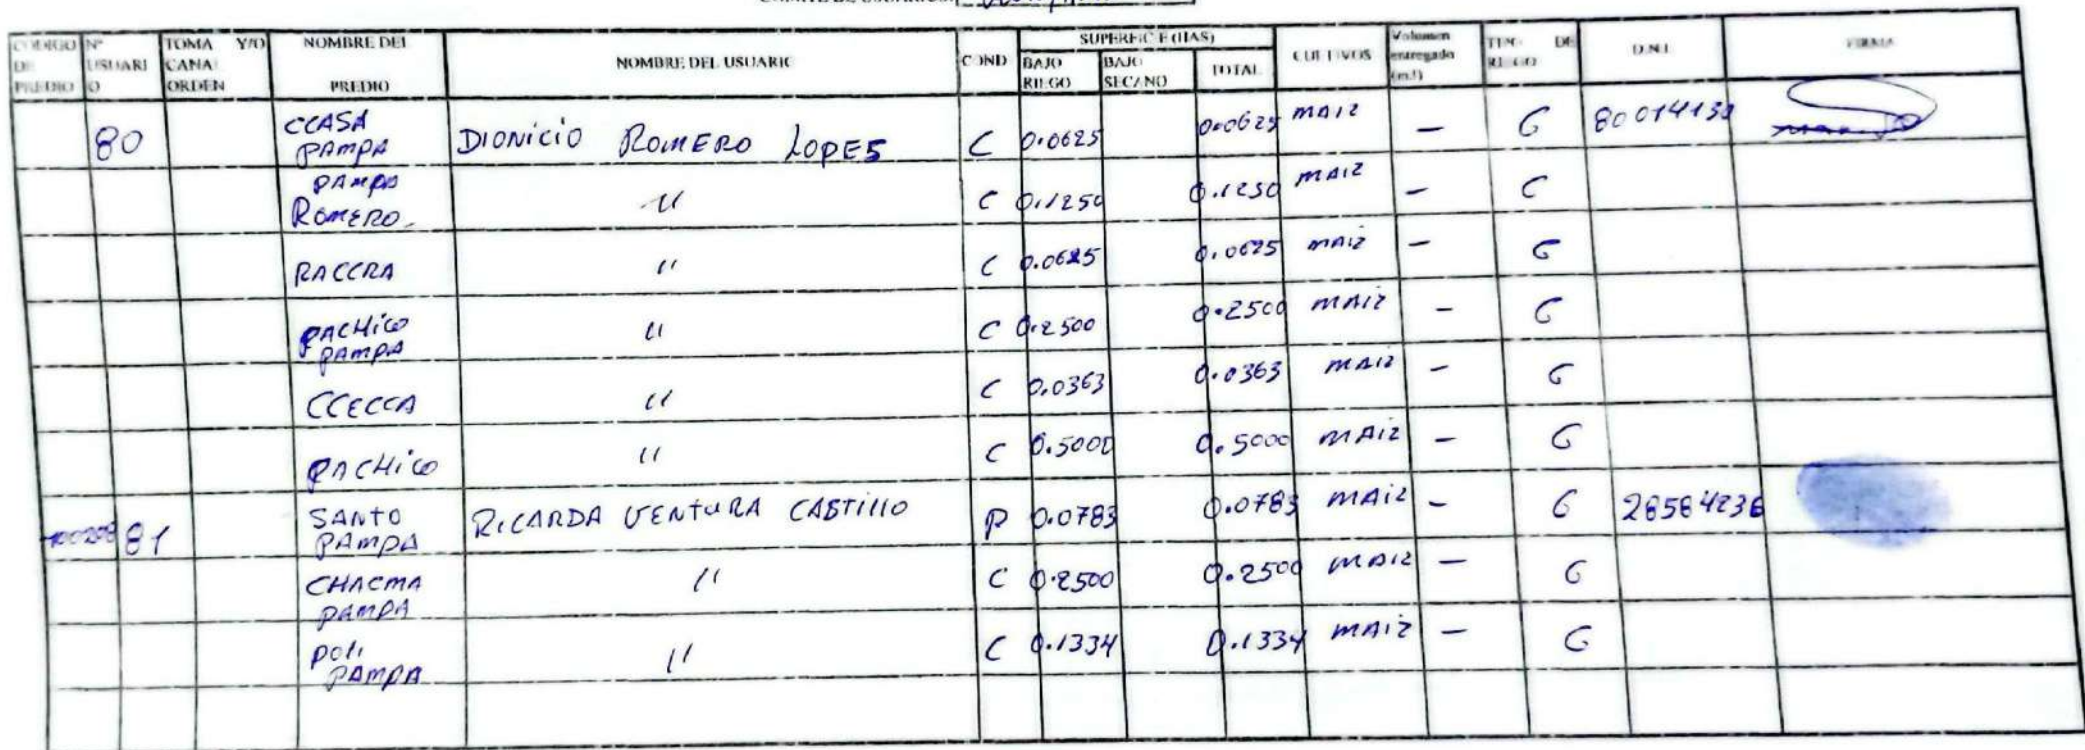 CODIGO DE PREDIO N° USUARIO TOMA Y/O CANAL ORDEN NOMBRE DEL PREDIO NOMBRE DEL USUARIO COND SUPERFICIE (HAS) BAJO RIEGO BAJO SECANO TOTAL CULTIVOS Volumen entregado (m3) TIPO DE RIEGO D.N.I FIRMA
80 CCASA PAMPA DIONICIO ROMERO LOPES C 0.0625 0.0625 MAIZ — G
PAMPA ROMERO " C 0.1250 0.1250 MAIZ — G
RACCRA " C 0.0625 0.0625 MAIZ — G
PACHICO PAMPA " C 0.2500 0.2500 MAIZ — G
CCECCA " C 0.0363 0.0363 MAIZ — G
PACHICO " C 0.5000 0.5000 MAIZ — G
81 SANTO PAMPA RICARDA VENTURA CASTILLO P 0.0783 0.0783 MAIZ — G 28584236
CHACMA PAMPA " C 0.2500 0.2500 MAIZ — G
POLI PAMPA " C 0.1334 0.1334 MAIZ — G